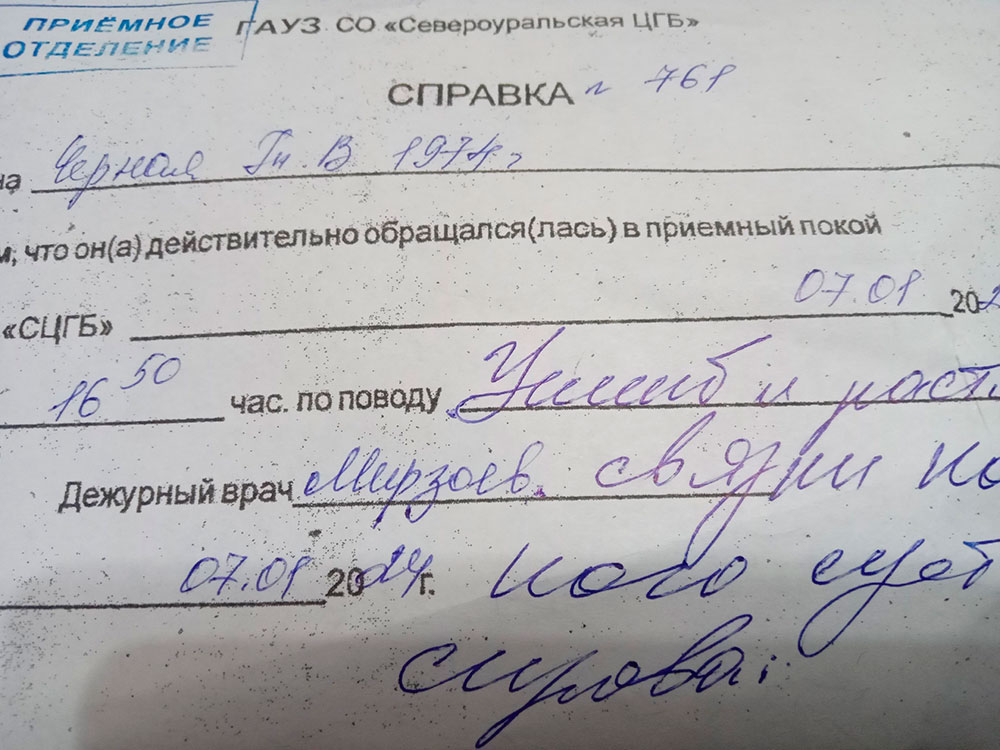 ПРИЁМНОЕ
ОТДЕЛЕНИЕ
ГАУЗ СО «Североуральская ЦГБ»
СПРАВКА № 761
на Черная Гн. В 1974 г
м, что он(а) действительно обращался(лась) в приемный покой
«СЦГБ» 07.01 202
16 50 час. по поводу Ушиб и раст
Дежурный врач Мирзоев. связки ко
07.01 2024 г. ного суст
справа.